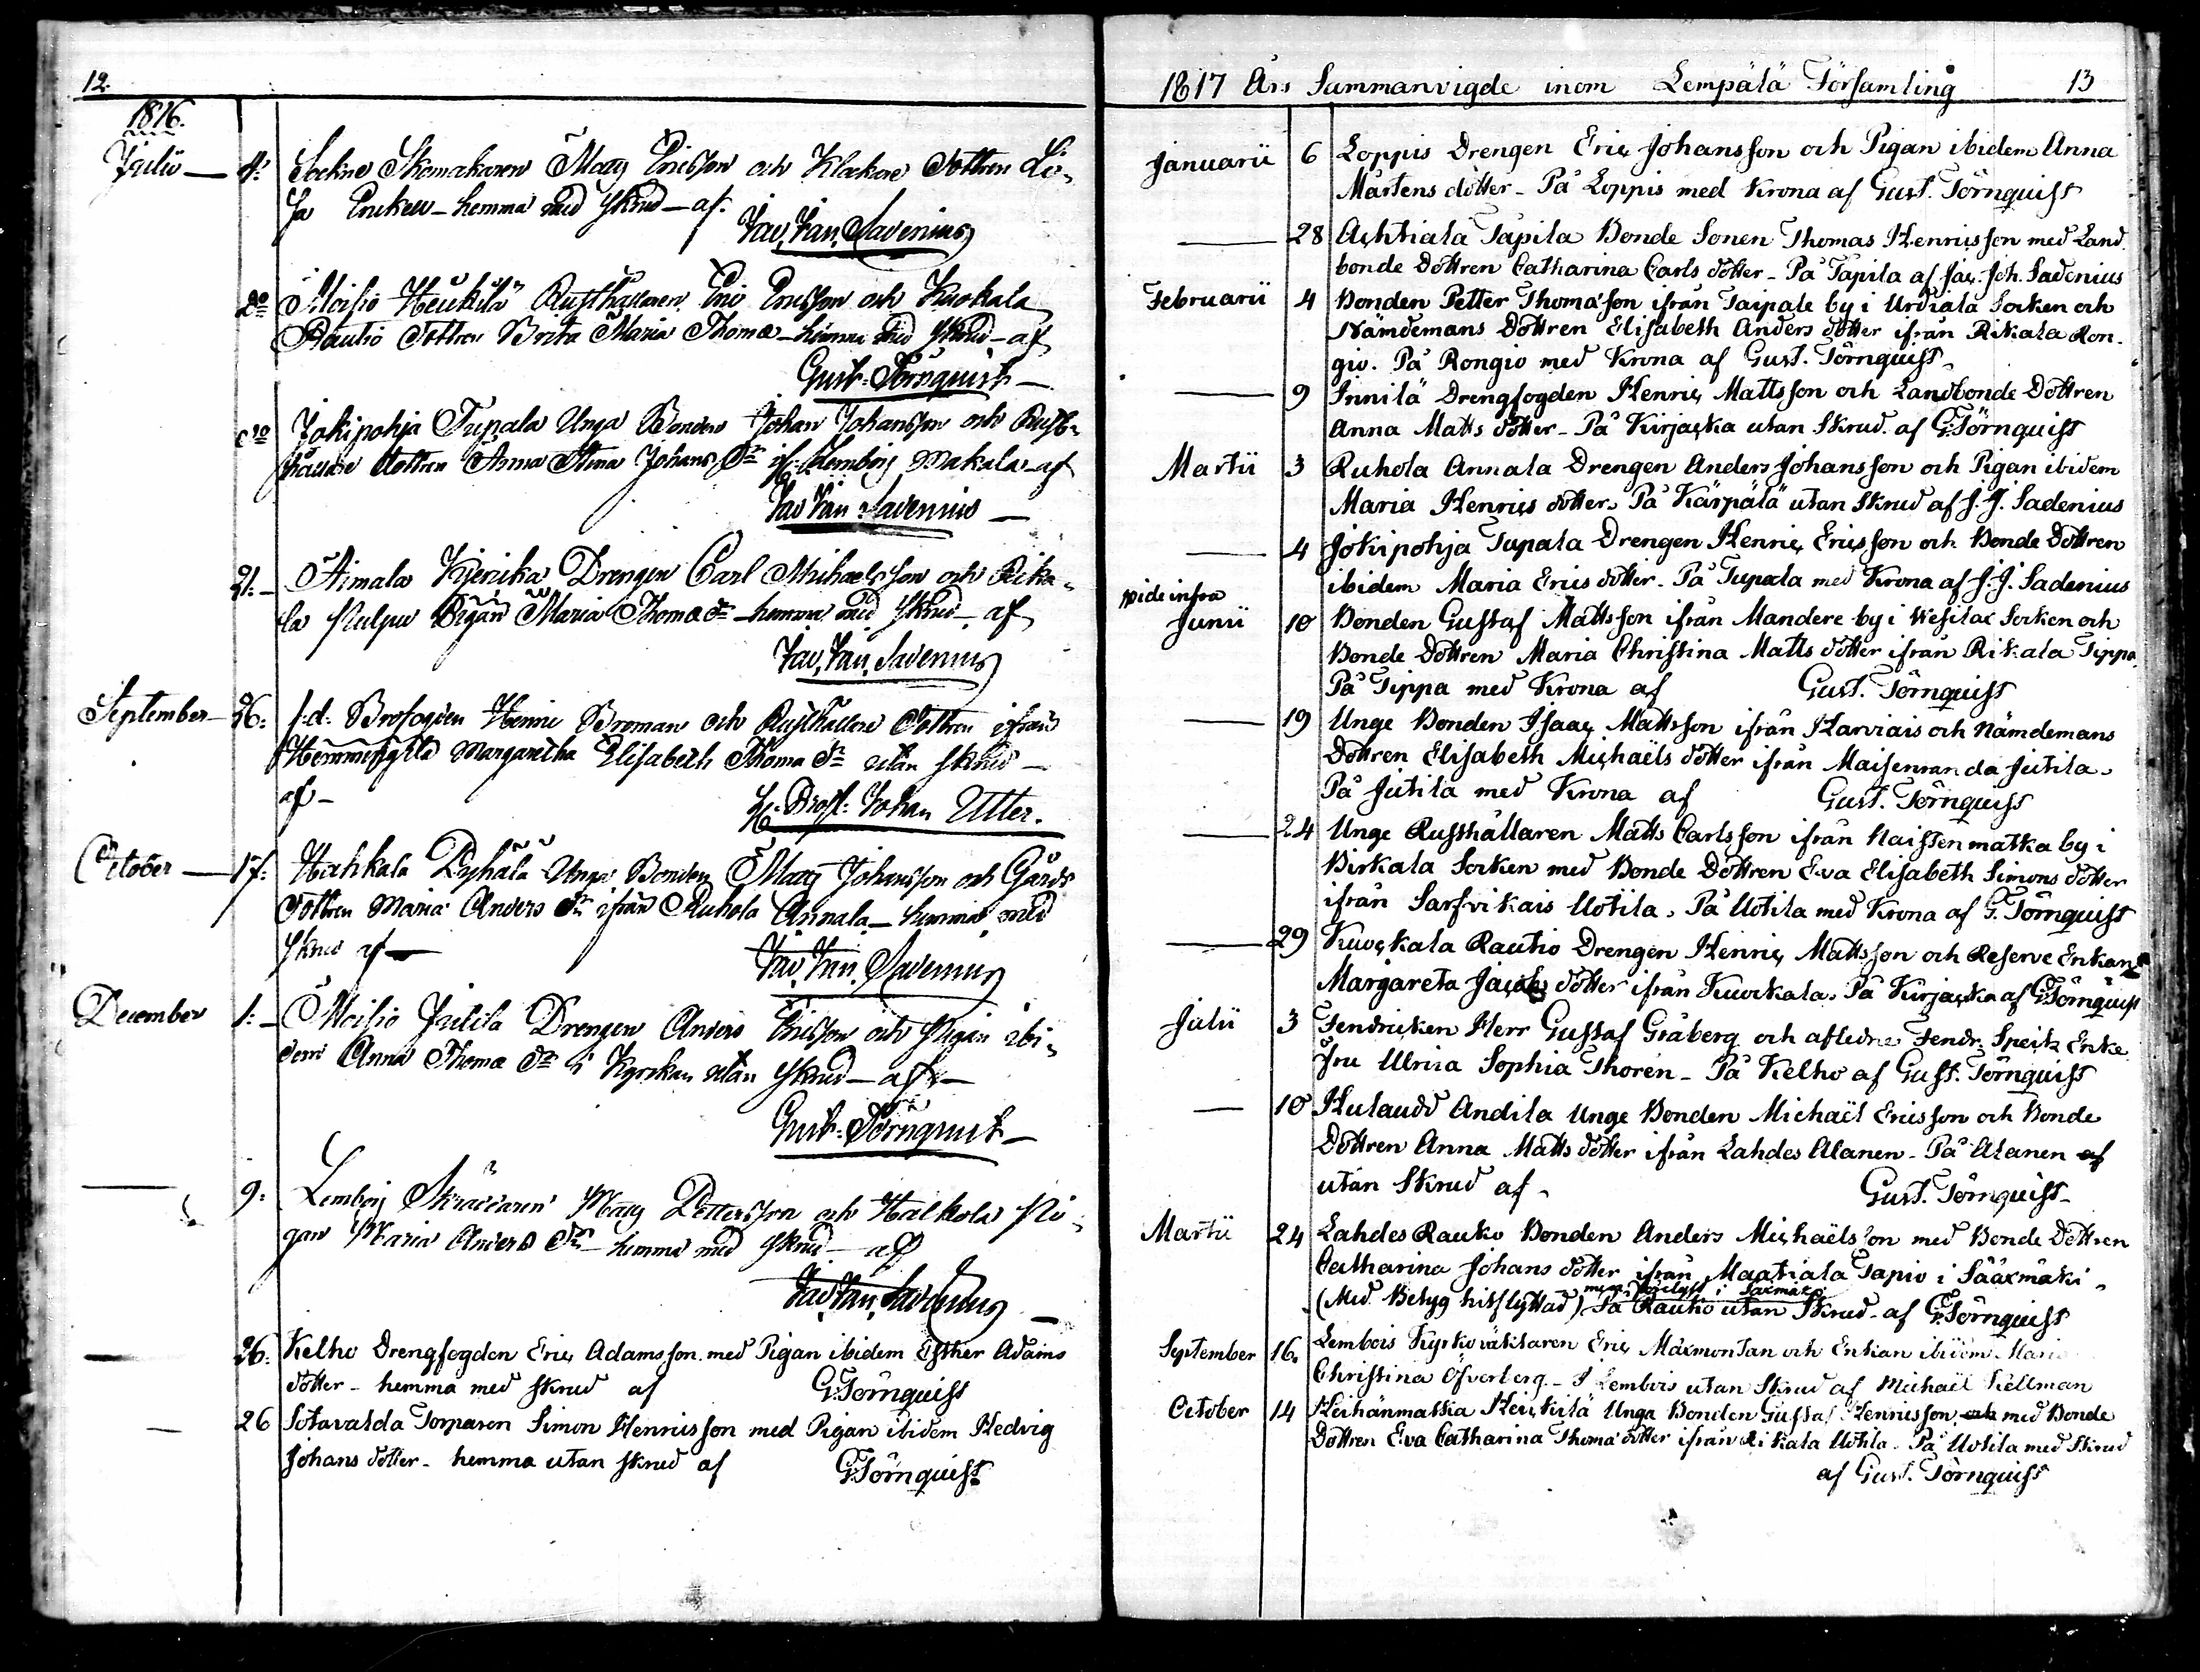 12.
1816.
Julii — 4: Sockne Skomakaren Matts Ericsson och Klockare Dottren Lo-
sa Encken - hemma med skrud - af.
Jac. Joh. Sadenius
do Moisio Heickilä Rusthållaren Eric Ericsson och Kuokala
Rautio Dottren Brita Maria Thomæ - hemma med skrud - af
Gust. Törnquist
do Jokipohja Tupala Unga Bonden Johan Johansson och Rust-
hållare dottren Anna Stina Johans Dr if. Lembois Makala - af
Jac. Joh. Sadenius
21. - Aimala Kjerika Drengen Carl Michaelsson och Rika-
la Pigan Maria Thomæ dr - hemma med skrud - af
Jac. Joh. Sadenius
September - 26: f.d. Brofogden Henric Broman och Rusthållare Dottren ifrån
Margaretha Elisabeth Thomæ Dr utan skrud -
af -
H. Prof. Johan Utter.
October — 17: Hahkala Pyhälä Unga Bonden Matts Johansson och Gårds
dottren Maria Anders dr ifrån Ruhola Annala - hemma med
skrud af —
Jac. Joh. Sadenius
December 1: - Moisio Jutila Drengen Anders Ericsson och Pigan ibi-
dem Anna Thomæ Dr i Kyrckan utan skrud - af -
Gust. Törnquist
— 9: Lembois Skräddaren Matts Pettersson och Halkola Pi-
gan Maria Anders Dr - hemma med skrud - af
Jac. Joh. Sadenius
— 26. Kelho Drengfogden Eric Adamsson med Pigan ibidem Esther Adams
dotter - hemma med skrud af G. Törnquist
— 26 Sotavalda Torparen Simon Henricsson med Pigan ibidem Hedvig
Johans dotter - hemma utan skrud af G. Törnquist
1817 Års Sammanvigde inom Lempälä Församling 13
Januarii 6 Loppis Drengen Eric Johansson och Pigan ibidem Anna
Mårtens dotter - På Loppis med Krona af Gust. Törnquist
— 28 Achtiala Tapila Bonde Sonen Thomas Henricsson med Land-
bonde Dottren Catharina Carls dotter - På Tapila af Jac. Joh. Sadenius
Februarii 4 Bonden Petter Thomasson ifrån Taipale by i Urdiala Socken och
Nämdemans Dottren Elisabeth Anders dotter ifrån Rikala Ron-
gio. På Rongio med Krona af Gust. Törnquist
— 9 Innilä Drengfogden Henric Mattsson och Landbonde Dottren
Anna Matts dotter - På Kirjacka utan Skrud. af G. Törnquist
Martii 3 Ruhola Annala Drengen Anders Johansson och Pigan ibidem
Maria Henrics dotter. På Kärpälä utan Skrud af J. J. Sadenius
— 4 Jokipohja Tupala Drengen Henric Ericsson och Bonde Dottren
ibidem Maria Erics dotter. På Tupala med Krona af J. J. Sadenius
vide infra
Junii 10 Bonden Gustaf Mattsson ifrån Mandere by i Wesilax Socken och
Bonde Dottren Maria Christina Matts dotter ifrån Rikala Tippa
På Tippa med Krona af Gust. Törnquist
— 19 Unge Bonden Isaac Mattsson ifrån Harviais och Nämdemans
Dottren Elisabeth Michaëls dotter ifrån Maisenranda Jutila.
På Jutila med Krona af Gust. Törnquist
— 24 Unge Rusthållaren Matts Carlsson ifrån Naistenmatka by i
Birkala Socken med Bonde Dottren Eva Elisabeth Simons dotter
ifrån Sarfvikais Uotila. På Uotila med Krona af G. Törnquist
— 29 Kuockala Rautio Drengen Henric Mattsson och Reserve Enkan
Margareta Jacobs dotter ifrån Kuockala. På Kirjacka af G. Törnquist
Julii 3 Fendricken Herr Gustaf Gråberg och afledne Fendr. Speitz Enke
Fru Ulrica Sophia Thorén - På Kelho af Gust. Törnquist
— 10 Hulaudd Andila Unge Bonden Michaël Ericsson och Bonde
Dottren Anna Matts dotter ifrån Lahdes Alanen - På Alanen af
utan Skrud af Gust. Törnquist
Martii 24 Lahdes Rauko Bonden Anders Michaëlsson med Bonde Dottren
Catharina Johans dotter ifrån Maatiala Tapio i Sääxmäki
(Med Betyg hitflyttad) På Rauko utan Skrud - af G. Törnquist
September 16. Lembois Kyrkoväktaren Eric Maxmontan och Enkan ibidem Maria
Christina Öfverberg - I Lembois utan Skrud af Michaël Hellman
October 14 Heihänmatka Heickilä Unga Bonden Gustaf Henricsson och med Bonde
Dottren Eva Catharina Thomæ dotter ifrån Rikala Uotila. På Uotila med Skrud
af Gust. Törnquist